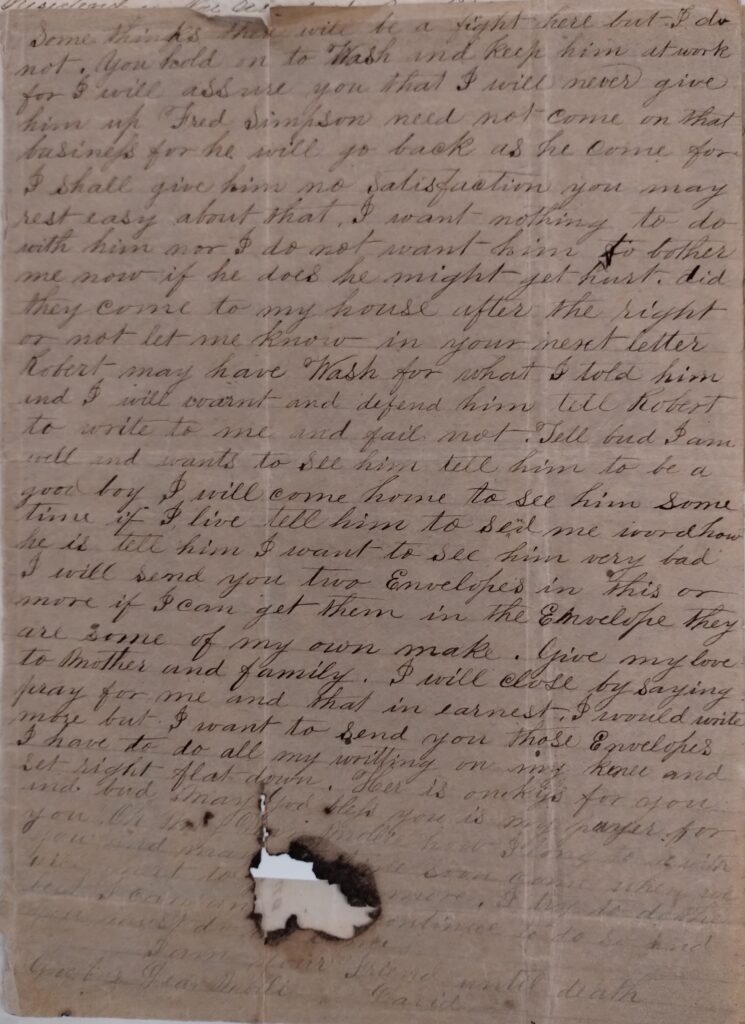 Some thinks there will be a fight here but I do
not. You hold on to Wash and keep him at work
for I will assure you that I will never give
him up Fred Simpson need not come on that
business for he will go back as he come for
I shall give him no satisfaction you may
rest easy about that. I want nothing to do
with him nor I do not want him to bother
me now if he does he might get hurt. did
they come to my house after the right
or not let me know in your next letter
Robert may have Wash for what I told him
and I will warnt and defend him tell Robert
to write to me and fail not. Tell bud I am
well and wants to see him tell him to be a
good boy I will come home to see him some
time if I live tell him to send me word how
he is tell him I want to see him very bad
I will send you two Envelopes in this or
more if I can get them in the Envelope they
are some of my own make. Give my love
to Mother and family. I will close by saying
pray for me and that in earnest. I would write
more but I want to send you those Envelopes
I have to do all my writting on my knee and
set right flat down. Her is one kiss for you
and bud May God bless you is my prayer for
you. how I long to
you and may soon come when we
more. I try to do the
best I can continue to do so and
I am your friend until death
David